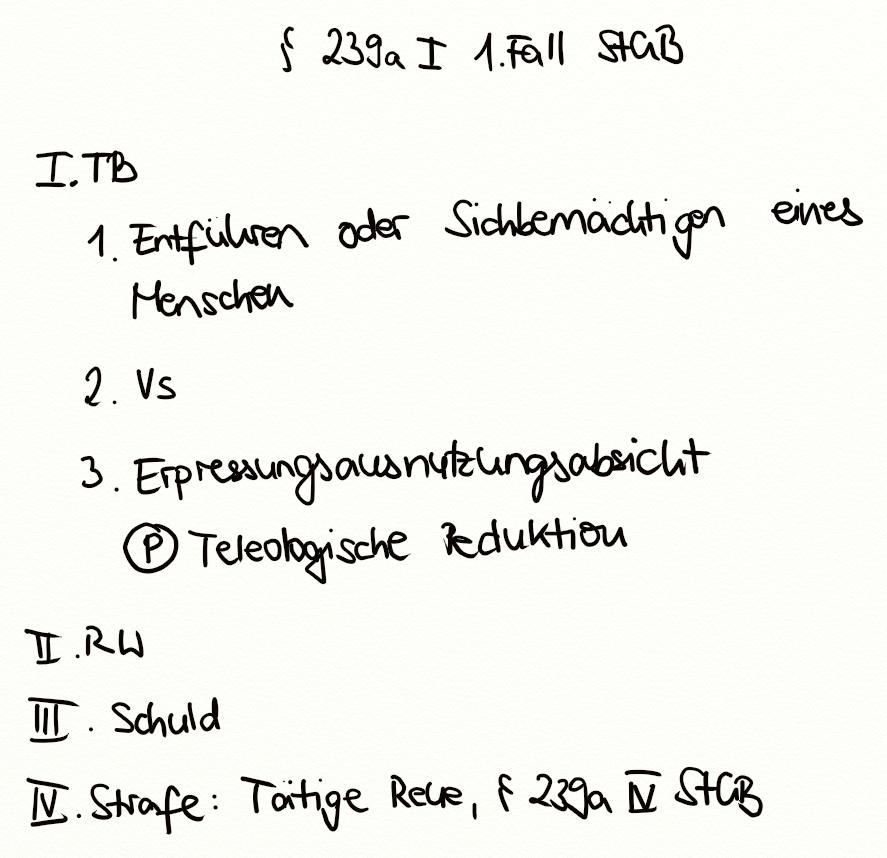 § 239a I 1. Fall StGB
I. TB
1. Entführen oder Sichbemächtigen eines
Menschen
2. Vs
3. Erpressungsausnutzungsabsicht
Ⓟ Teleologische Reduktion
II. RW
III. Schuld
IV. Strafe: Tätige Reue, § 239a IV StGB